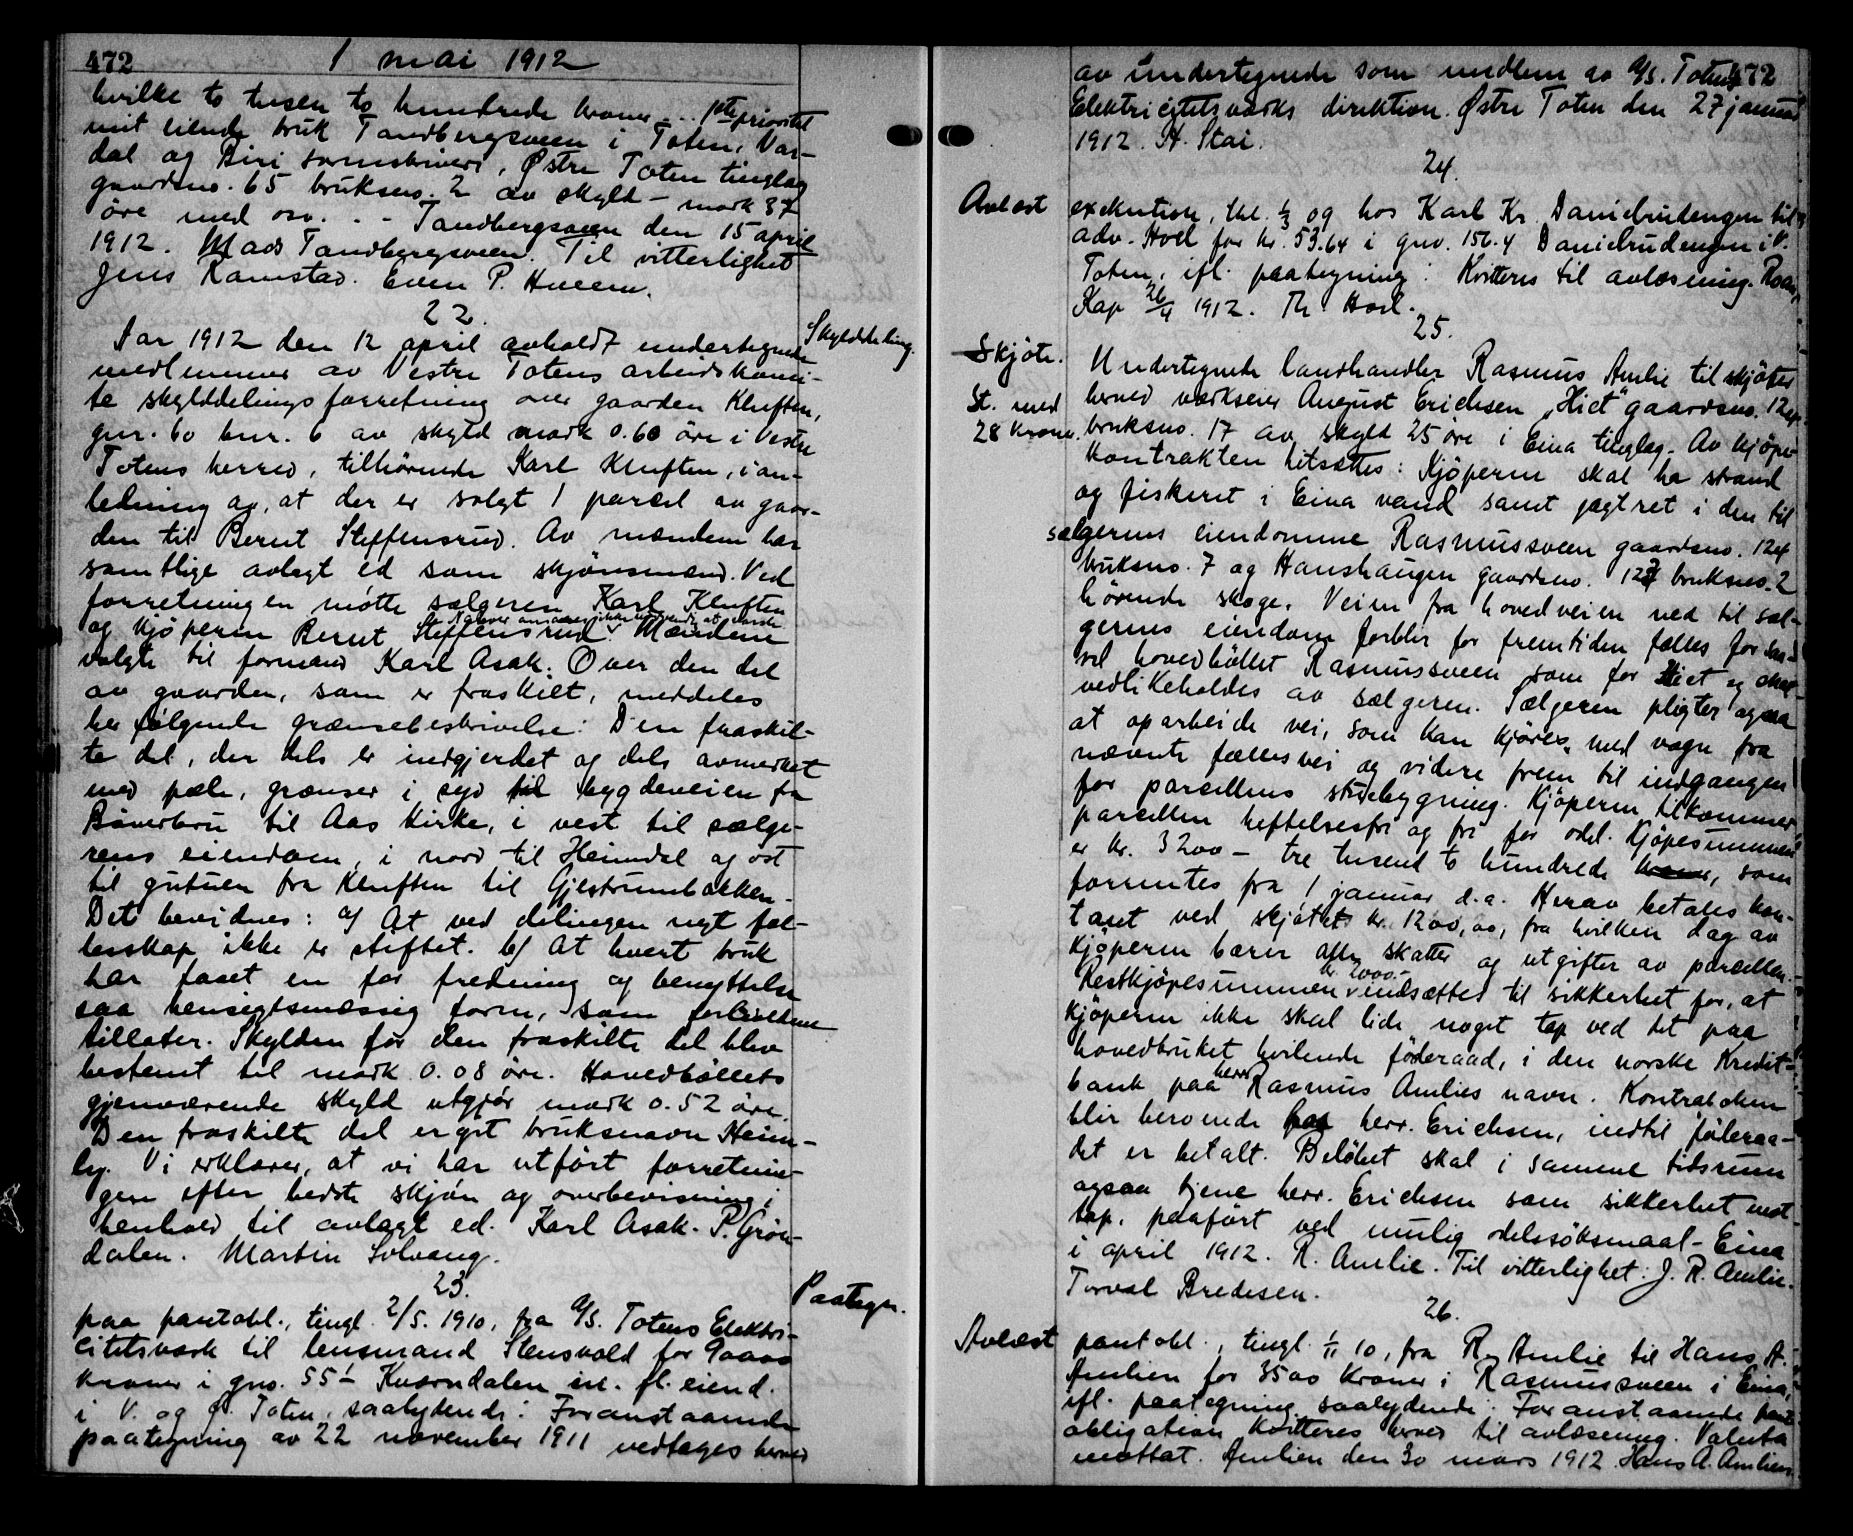 472 1 mai 1912
hvilke to tusen to hundrede kroner - . . 1ste prioritet
mit eiende bruk Tandbergsveen i Toten, Var-
dal og Biri sorenskriveri, Østre Toten tinglag
gaardsno. 65 bruksno. 2 av skyld - mark 37
øre med osv. . - Tandbergsveen den 15 april
1912. Mads Tandbergsveen. Til vitterlighet
Jens Ramstad. Even P. Hveem.
22.
Skylddeling.
Aar 1912 den 12 april avholdt undertegnede
medlemmer av Vestre Totens arbeidskomi-
te skylddelingsforretning over gaarden Kluften,
gnr. 60 bnr. 6 av skyld mark 0.60 øre i Vestre
Totens herred, tilhørende Karl Kluften, i an-
ledning av, at der er solgt 1 parcel av gaar-
den til Bernt Steffensrud. Av mændene har
samtlige avlagt ed som skjønsmænd. Ved
forretningen møtte sælgeren Karl Kluften
og kjøperen Bernt Steffensrud. Mændene
Naboer ansaaes ikke nødvendig at varsle
valgte til formand Karl Asak. Over den del
av gaarden, som er fraskilt, meddeles
her følgende grænsebeskrivelse: Den fraskil-
te del, der dels er indgjerdet og dels avmerket
med pæle, grænser i syd til bygdeveien fra
Bøverbru til Aas kirke, i vest til sælge-
rens eiendom, i nord til Heimdal og øst
til gutuen fra Kluften til Gjestrumbakken.
Det bevidnes: a/ At ved delingen nyt fæl-
lesskap ikke er stiftet. b/ At hvert bruk
har faaet en for fredning og benyttelse
saa hensigtsmæssig form, som forholdene
tillater. Skylden for den fraskilte del blev
bestemt til mark 0.08 øre. Hovedbøllets
gjenværende skyld utgjør mark 0.52 øre.
Den fraskilte del er git bruksnavn Heim-
ly. Vi erklærer, at vi har utført forretnin-
gen efter bedste skjøn og overbevisning i
henhold til avlagt ed. Karl Asak. P. Grøn-
dalen. Martin Solvang.
23.
Paategn.
paa pantobl., tingl. 2/5. 1910, fra A/S. Totens Elektri-
citetsværk til lensmand Stensvold for 90000
kroner i gno. 55-1 Kværndalen m. fl. eiend.
i V. og Ø. Toten, saalydende: Foranstaaende
paategning av 22 november 1911 vedtages herved
av undertegnede som medlem av A/S. Totens 472
Elektricitetsværks direktion. Østre Toten den 27 januar
1912. H. Stai.
24.
Avlæst execution, thl. 1/3 og hos Karl Kr. Danielrudengen til
adv. Hoel for kr. 53.64 i gno. 156.4 Danielrudengen i V.
Toten, ifl. paategning: Kvitteres til avlæsning.
Kap 26/4 1912. Th Hoel.
25.
Skjøte.
St. med
28 kroner.
Undertegnede landhandler Rasmus Amlie tilskjøter
herved værkseier August Erichsen "Hiet" gaardsno. 124
bruksno. 17 av skyld 25 øre i Eina tinglag. Av kjøpe-
kontrakten hitsættes: Kjøperen skal ha strand
og fiskeret i Eina vand samt jagtret i den til
sælgerens eiendomme Rasmussveen gaardsno. 124
bruksno. 7 og Hanshaugen gaardsno. 127 bruksno. 2
hørende skoge. Veien fra hovedveien ned til sæl-
gerens eiendom forblir for fremtiden fælles for saa-
vel hovedbøllet Rasmussveen som for Hiet og skal
vedlikeholdes av sælgeren. Sælgeren pligter ogsaa
at oparbeide vei, som kan kjøres med vogn fra
nævnte fællesvei og videre frem til indgangen
for parcellens stuebygning. Kjøperen tilkommer
parcellen heftelsesfri og fri for odel. Kjøpesummen
er kr. 3200 - tre tusend to hundrede kroner, som
forrentes fra 1 januar d.a. Herav betales kon-
tant ved skjøtet kr. 1200,00, fra hvilken dag av
kjøperen bærer alle skatter og utgifter av parcellen.
Restkjøpesummen kr. 2000.- indsættes til sikkerhet for, at
kjøperen ikke skal lide noget tap ved det paa
hovedbruket hvilende føderaad, i den norske Kredit-
bank paa herr Rasmus Amlies navn. Kontraboken
blir beroende hos herr. Erichsen, indtil føderaa-
det er betalt. Beløbet skal i samme tidsrum
ogsaa tjene herr. Erichsen som sikkerhet mot
tap, paaført ved mulig odelssøksmaal - Eina
i april 1912. R. Amlie. Til vitterlighet: J. R. Amlie.
Torval Bredesen.
26.
Avlæst pantobl., tingl. 1/11 10, fra R. Amlie til Hans A.
Amlien for 3500 kroner i Rasmussveen i Eina,
ifl. paategning saalydende: Foranstaaende pant-
obligation kvitteres herved til avlæsning. Valuta
mottat. Amlien den 30 mars 1912. Hans A. Amlien.